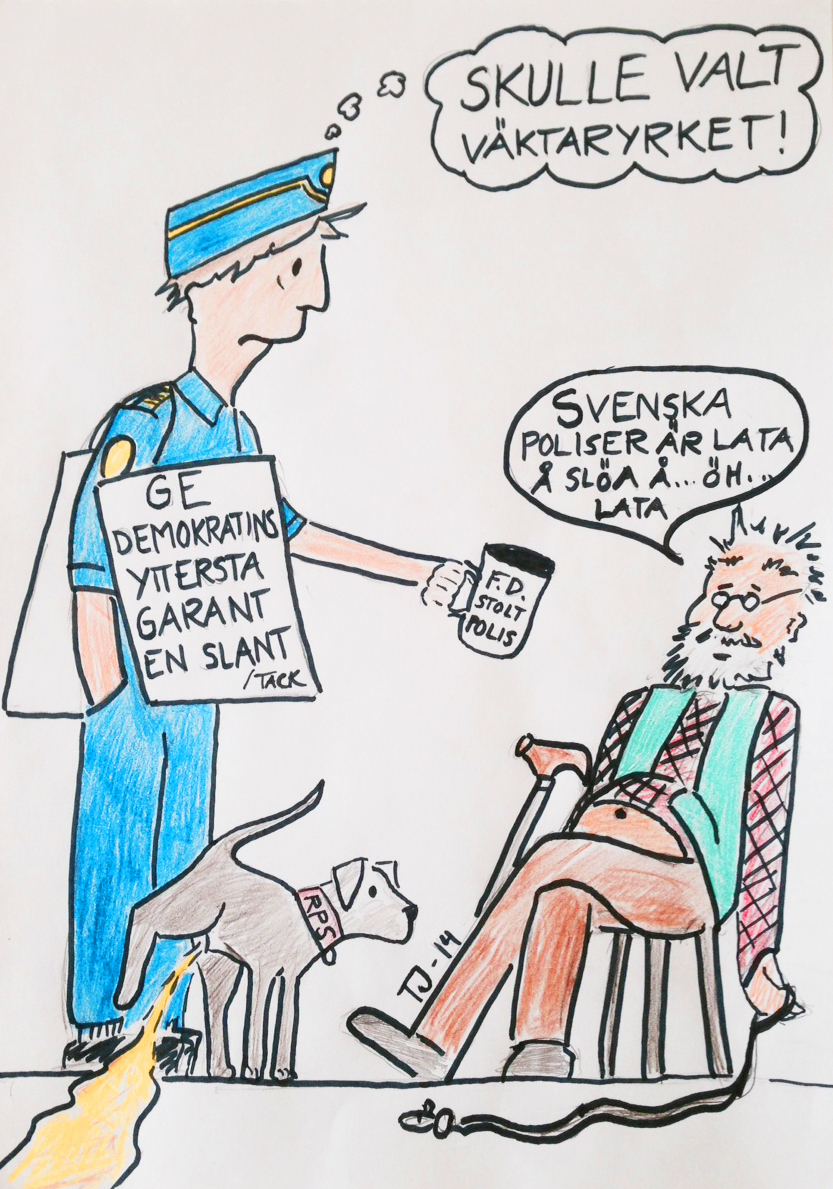 SKULLE VALT
VÄKTARYRKET!
SVENSKA
POLISER ÄR LATA
Å SLÖA Å... ÖH...
LATA
GE
DEMOKRATINS
YTTERSTA
GARANT
EN SLANT
/TACK
F.D.
STOLT
POLIS
RPS
TJ-14